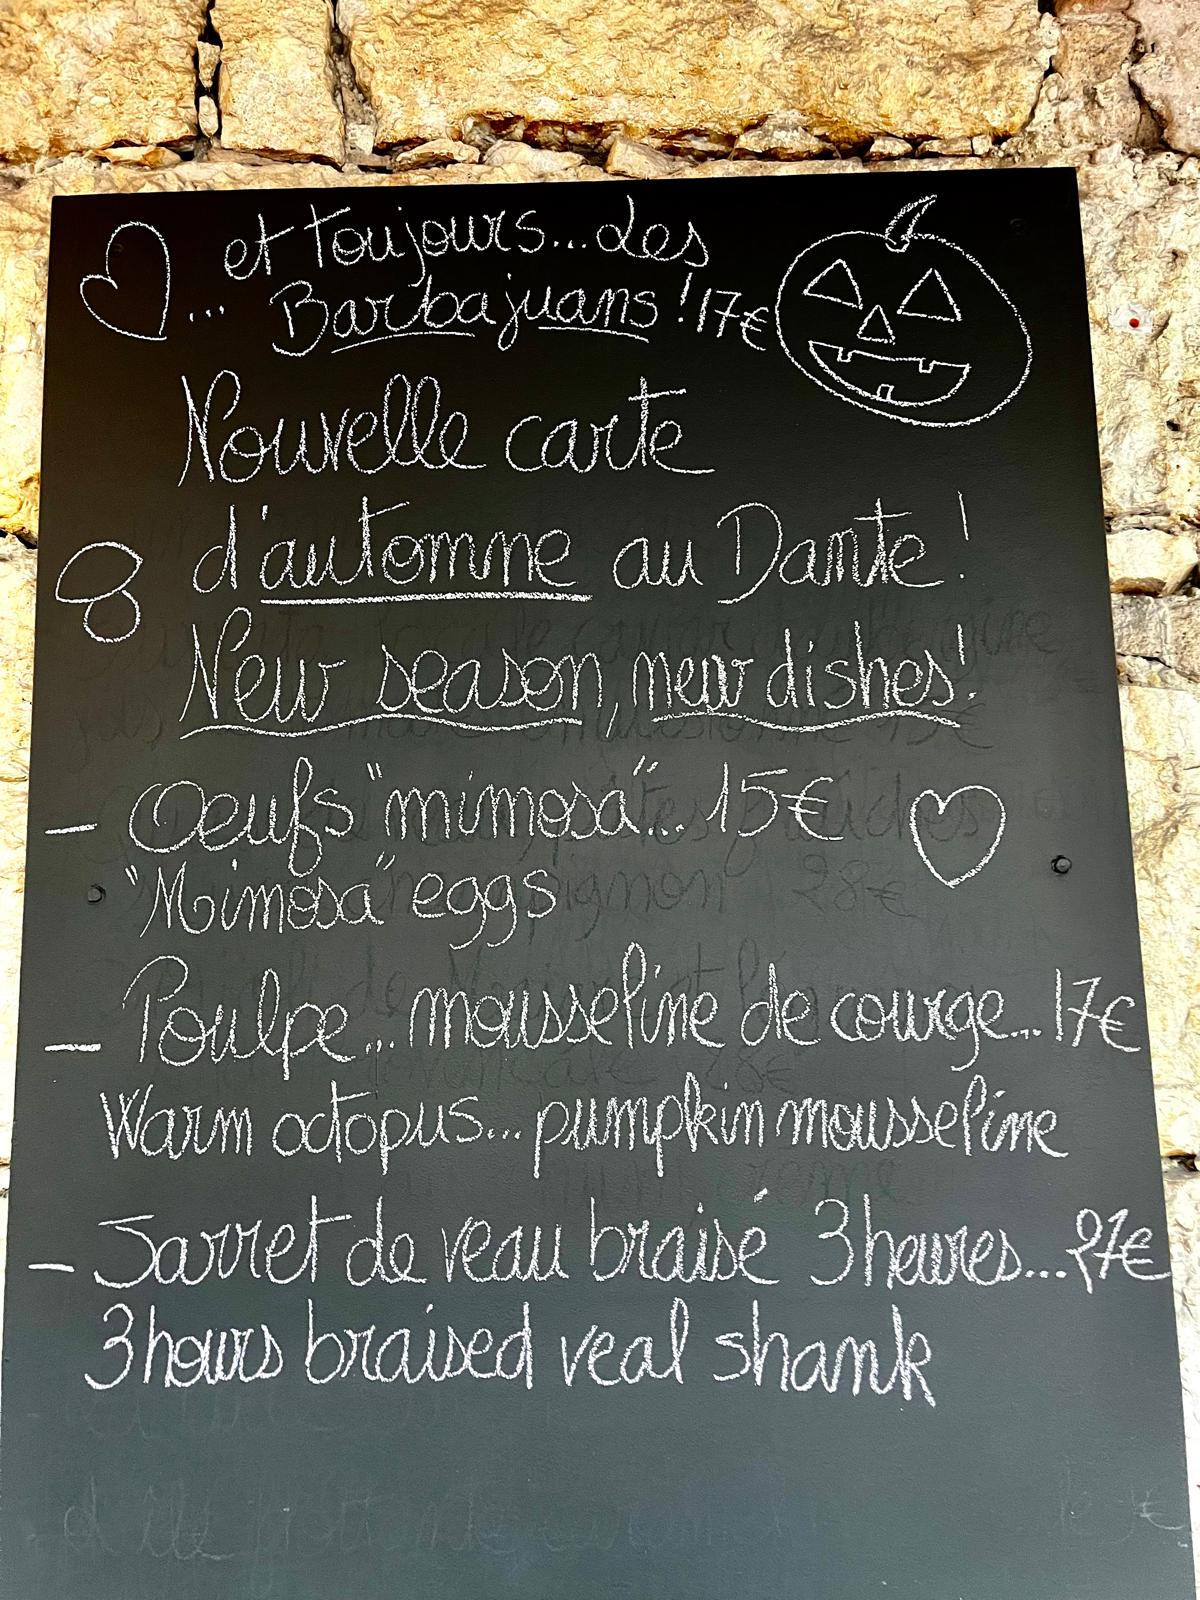 et toujours... des
... Barbajuans ! 17€
Nouvelle carte
d'automne au Dante !
New season, new dishes !
- Oeufs "mimosa"... 15€
"Mimosa" eggs
- Poulpe... mousseline de courge... 17€
Warm octopus... pumpkin mousseline
- Jarret de veau braisé 3 heures... 27€
3 hours braised veal shank